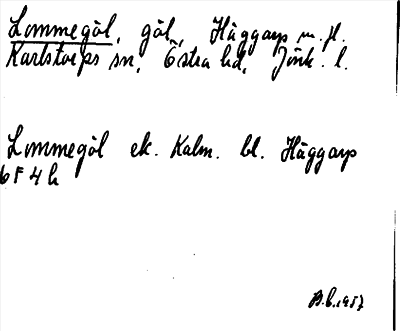 Lommegöl, göl, Häggarp m.fl.
Karlstorps sn, Östra hd, Jönk. l.
Lommegöl ek. Kalm. bl. Häggarp
b F 4 h
B.b. 1957